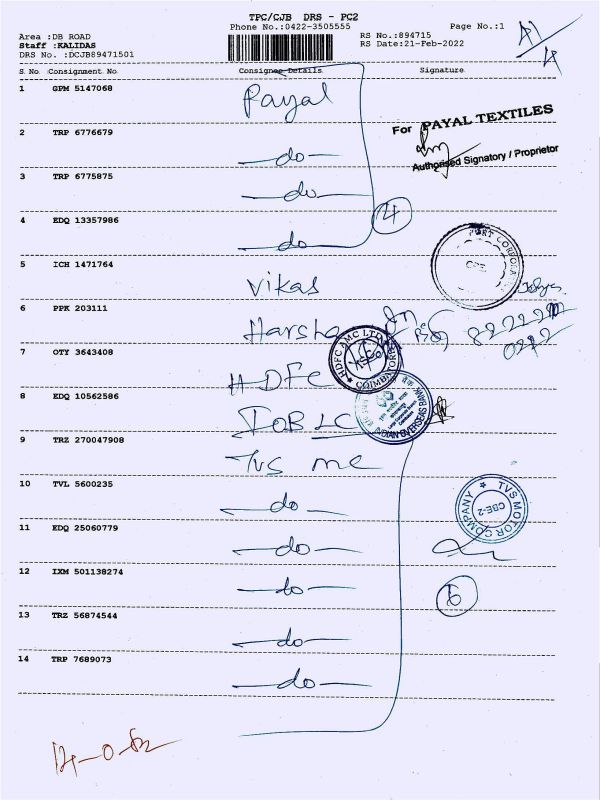 TPC/CJB DRS - PC2
Phone No.:0422-3505555 Page No.:1
Area :DB ROAD RS No.:894715
Staff :KALIDAS RS Date:21-Feb-2022
DRS No. :DCJB89471501
S No Consignment No Consignee Details Signature
1 GPM 5147068 Payal
For PAYAL TEXTILES
Authorised Signatory / Proprietor
2 TRP 6776679 -do-
3 TRP 6775875 -do-
4
4 EDQ 13357986 -do-
5 ICH 1471764 Vikas
6 PPK 203111 Harsha
HDFC AMC LTD
COIMBATORE
7 OTY 3643408 HDFC
8 EDQ 10562586 IOB LC
INDIAN OVERSEAS BANK
9 TRZ 270047908 TVS mc
10 TVL 5600235 -do-
TVS MOTOR COMPANY
CBE-2
11 EDQ 25060779 -do-
12 IXM 501138274 -do-
6
13 TRZ 56874544 -do-
14 TRP 7689073 -do-